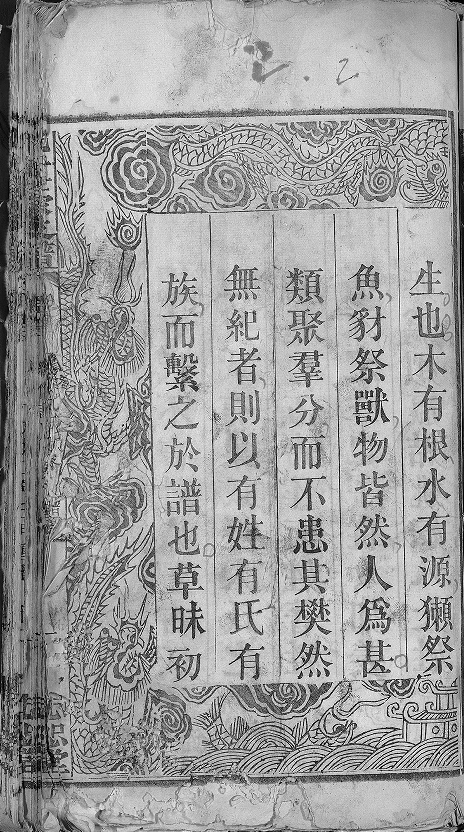 2.2
生也木有根水有源獺祭
魚豺祭獸物皆然人爲甚
類聚羣分而不患其樊然
無紀者則以有姓有氏有
族而繫之於譜也草昧初